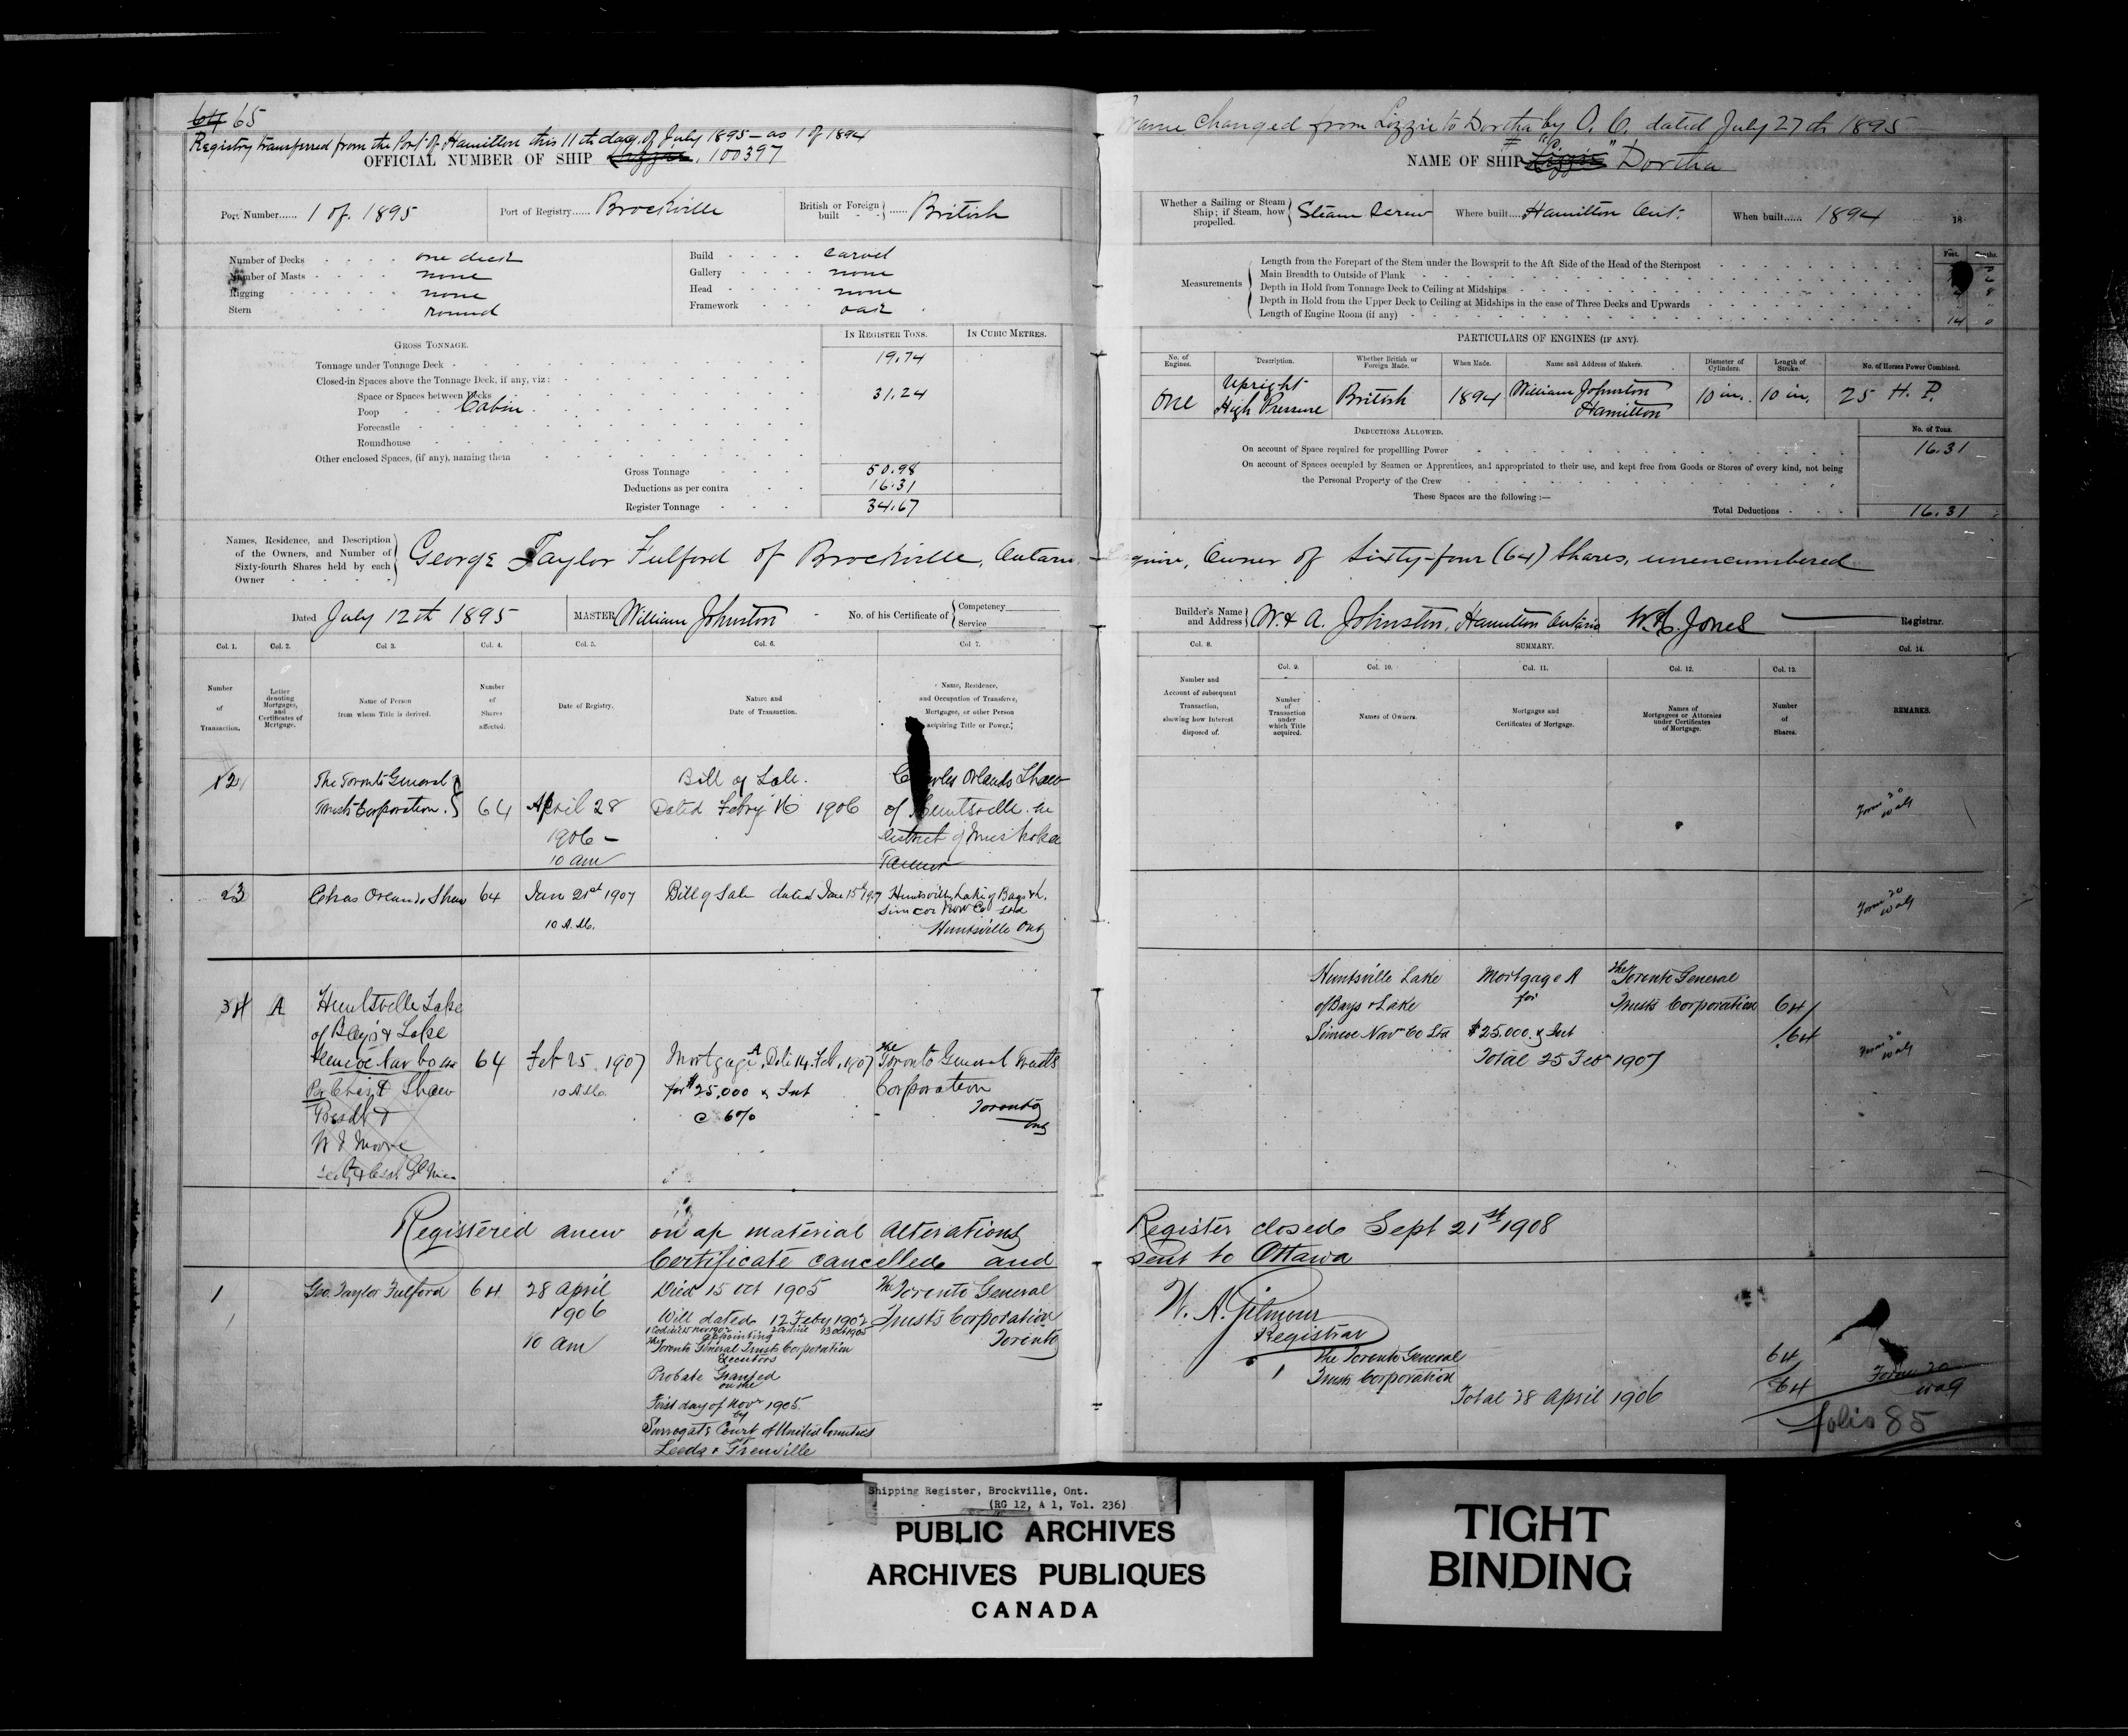 64 65
Registry transferred from the Port of Hamilton this 11th day of July 1895 — as 1 of 1894
OFFICIAL NUMBER OF SHIP Lizzie, 100397
Port Number...... 1 of 1895
Port of Registry...... Brockville
British or Foreign built ...... British
Number of Decks one deck
Number of Masts none
Rigging none
Stern round
Build carvel
Gallery none
Head none
Framework oak
IN REGISTER TONS. IN CUBIC METRES.
GROSS TONNAGE.
Tonnage under Tonnage Deck 19.74
Closed-in Spaces above the Tonnage Deck, if any, viz:
Space or Spaces between Decks 31.24
Poop Cabin
Forecastle
Roundhouse
Other enclosed Spaces, (if any), naming them
Gross Tonnage 50.98
Deductions as per contra 16.31
Register Tonnage 34.67
Names, Residence, and Description of the Owners, and Number of Sixty-fourth Shares held by each Owner
George Taylor Fulford of Brockville, Ontario
Dated July 12th 1895
MASTER William Johnston
No. of his Certificate of Competency Service
Col. 1. Col. 2. Col. 3. Col. 4. Col. 5. Col. 6. Col. 7.
Number of Transaction.
Letter denoting Mortgages, and Certificates of Mortgage.
Name of Person from whom Title is derived.
Number of Shares affected.
Date of Registry.
Nature and Date of Transaction.
Name, Residence, and Occupation of Transferee, Mortgagee, or other Person acquiring Title or Power.
2
The Toronto General
Trusts Corporation.
64
April 28
1906 —
10 am
Bill of Sale.
Dated Febry 16 1906
Charles Orlando Shaw
of Huntsville in
District of Muskoka
Tanner
3
Chas Orlando Shaw
64
Jan 21st 1907
10 A.M.
Bill of Sale dated Jan 15th 1907
Huntsville, Lake of Bays & L.
Simcoe Nav Co Ltd
Huntsville Ont
4
A
Huntsville Lake
of Bays & Lake
Simcoe Nav Co Ltd
Shaw
Presdt &
W J Moore
64
Feb 25 1907
10 AM.
Mortgage A, Date 14 Feb, 1907
for $25,000 & Int
@ 6%
The Toronto General Trusts
Corporation
Toronto
Ont
Registered anew on ap material alterations
Certificate cancelled and
1
Geo. Taylor Fulford
64
28 April
1906
10 am
Died 15 Oct 1905
Will dated 12 Feby 1902
appointing
The Toronto General Trusts Corporation
Executors
Probate Granted
on the
First day of Novr 1905
by
Surrogate Court of United Counties
Leeds & Grenville
The Toronto General
Trusts Corporation
Toronto
Name changed from Lizzie to Dortha by O. C. dated July 27th 1895
NAME OF SHIP Lizzie "Dortha"
Whether a Sailing or Steam Ship; if Steam, how propelled. Steam Screw
Where built.... Hamilton Ont.
When built...... 1894 18
Feet.
Measurements
Length from the Forepart of the Stem under the Bowsprit to the Aft Side of the Head of the Sternpost
Main Breadth to Outside of Plank
Depth in Hold from Tonnage Deck to Ceiling at Midships
Depth in Hold from the Upper Deck to Ceiling at Midships in the case of Three Decks and Upwards
Length of Engine Room (if any) 14 0
PARTICULARS OF ENGINES (IF ANY).
No. of Engines. Description. Whether British or Foreign Made. When Made. Name and Address of Makers. Diameter of Cylinders. Length of Stroke. No. of Horses Power Combined.
One
Upright High Pressure
British
1894
William Johnston
Hamilton
10 in. 10 in. 25 H. P.
DEDUCTIONS ALLOWED. No. of Tons.
On account of Space required for propelling Power 16.31
On account of Spaces occupied by Seamen or Apprentices, and appropriated to their use, and kept free from Goods or Stores of every kind, not being
the Personal Property of the Crew
These Spaces are the following :—
Total Deductions 16.31
Esquire, Owner of Sixty-four (64) Shares, unencumbered
Builder's Name and Address W. & A. Johnston, Hamilton Ontario
W. H. Jones Registrar.
Col. 8. SUMMARY. Col. 14.
Col. 9. Col. 10. Col. 11. Col. 12. Col. 13.
Number and Account of subsequent Transaction, showing how Interest disposed of.
Number of Transaction under which Title acquired.
Names of Owners.
Mortgages and Certificates of Mortgage.
Names of Mortgagees or Attornies under Certificates of Mortgage.
Number of Shares.
REMARKS.
Form 20
Form 20
Huntsville Lake
of Bays & Lake
Simcoe Nav Co Ltd
Mortgage A
for
$25,000. & Int
Total 25 Feb 1907
The Toronto General
Trusts Corporation
64/
/64
Form 20
Register closed Sept 21st 1908
sent to Ottawa
W. A. Gilmour
Registrar
1
The Toronto General
Trusts Corporation
Total 28 April 1906
64/
64
Form 20
folio 85
Shipping Register, Brockville, Ont.
(RG 12, A 1, Vol. 236)
PUBLIC ARCHIVES
ARCHIVES PUBLIQUES
CANADA
TIGHT
BINDING